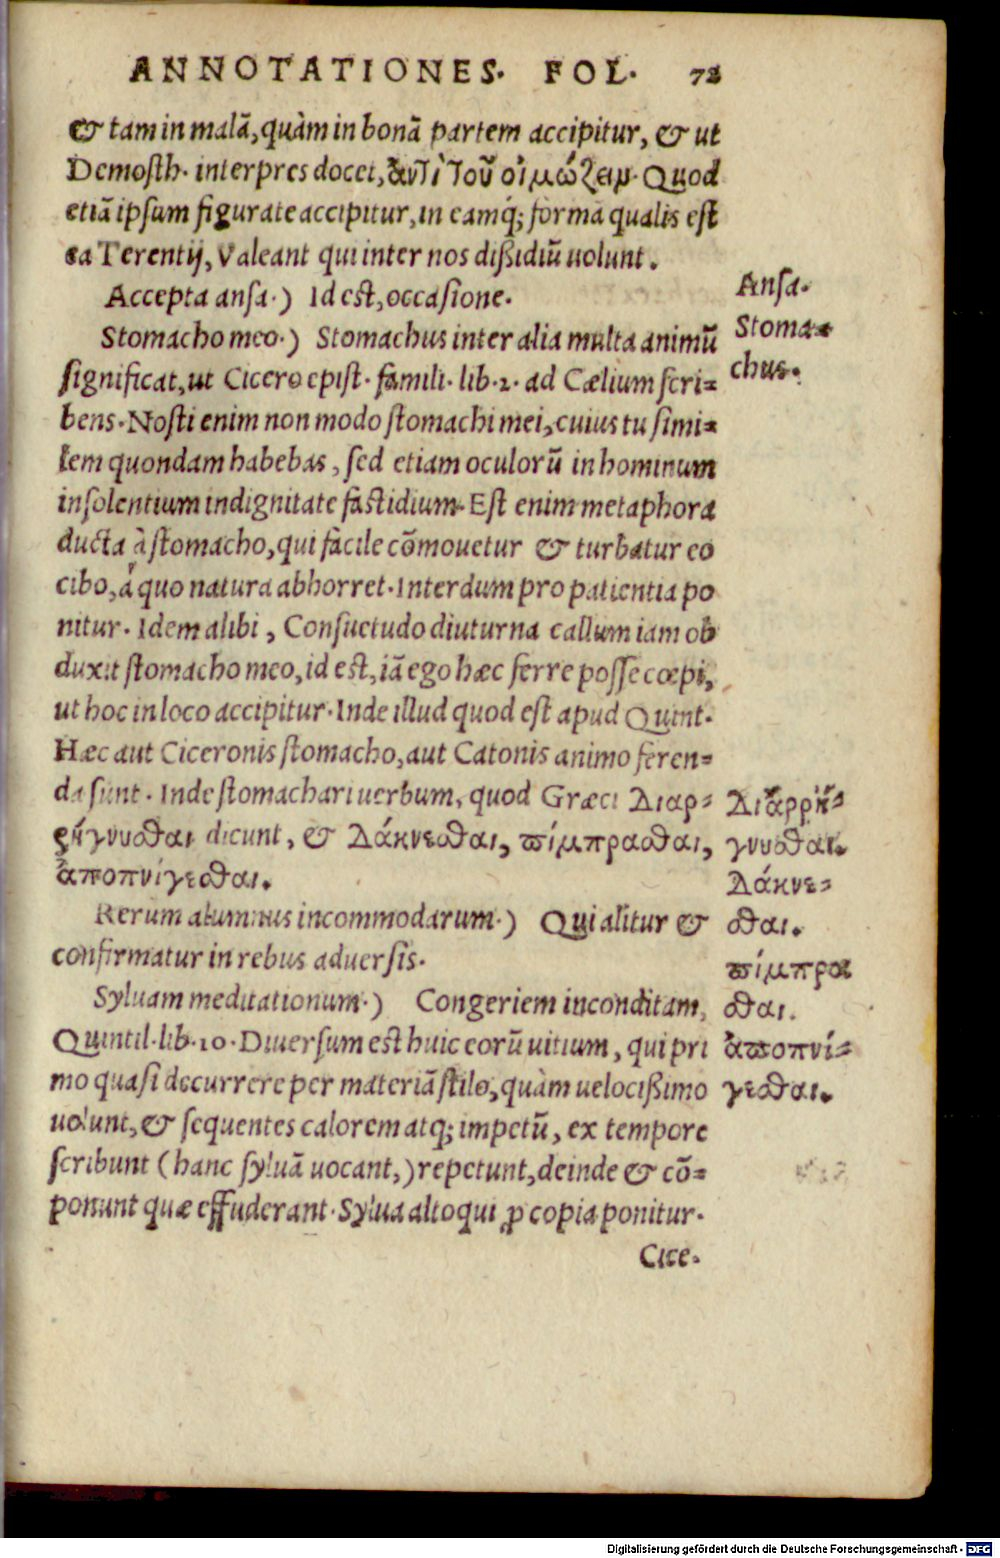 ANNOTATIONES. FOL. 72
& tam in malā, quàm in bonā partem accipitur, & ut
Demosth. interpres docet, ἀντὶ τοῦ οἰμώζειν. Quod
etiā ipsum figurate accipitur, in eamq́; formā qualis est
ea Terentij, Valeant qui inter nos dißidiū uolunt.
Accepta ansa.) Id est, occasione.
Ansa.
Stomacho meo.) Stomachus inter alia multa animū
Stoma-
significat, ut Cicero epist. famili. lib. 2. ad Cælium scri-
chus.
bens. Nosti enim non modo stomachi mei, cuius tu simi-
lem quondam habebas, sed etiam oculorū in hominum
insolentium indignitate fastidium. Est enim metaphora
ducta à stomacho, qui facile cōmouetur & turbatur eo
cibo, à quo natura abhorret. Interdum pro patientia po
nitur. Idem alibi, Consuetudo diuturna callum iam ob
duxit stomacho meo, id est, iā ego hæc ferre posse cœpi,
ut hoc in loco accipitur. Inde illud quod est apud Quint.
Hæc aut Ciceronis stomacho, aut Catonis animo feren-
da sunt. Inde stomachari uerbum, quod Græci Διαρ-
Διαῤῥή-
ρήγνυσθαι dicunt, & Δάκνεσθαι, πίμπρασθαι,
γνυσθαι.
ἀποπνίγεσθαι.
Δάκνε-
Rerum alumnus incommodarum.) Qui alitur &
σθαι.
confirmatur in rebus aduersis.
πίμπρα
Syluam meditationum.) Congeriem inconditam,
σθαι.
Quintil. lib. 10. Diuersum est huic eorū uitium, qui pri
ἀποπνί-
mo quasi decurrere per materiā stilo, quàm uelocißimo
γεσθαι.
uolunt, & sequentes calorem atq; impetū, ex tempore
scribunt (hanc syluā uocant,) repetunt, deinde & cō-
ponunt quæ effuderant. Sylua alioqui ꝓ copia ponitur.
Cice.
Digitalisierung gefördert durch die Deutsche Forschungsgemeinschaft - DFG